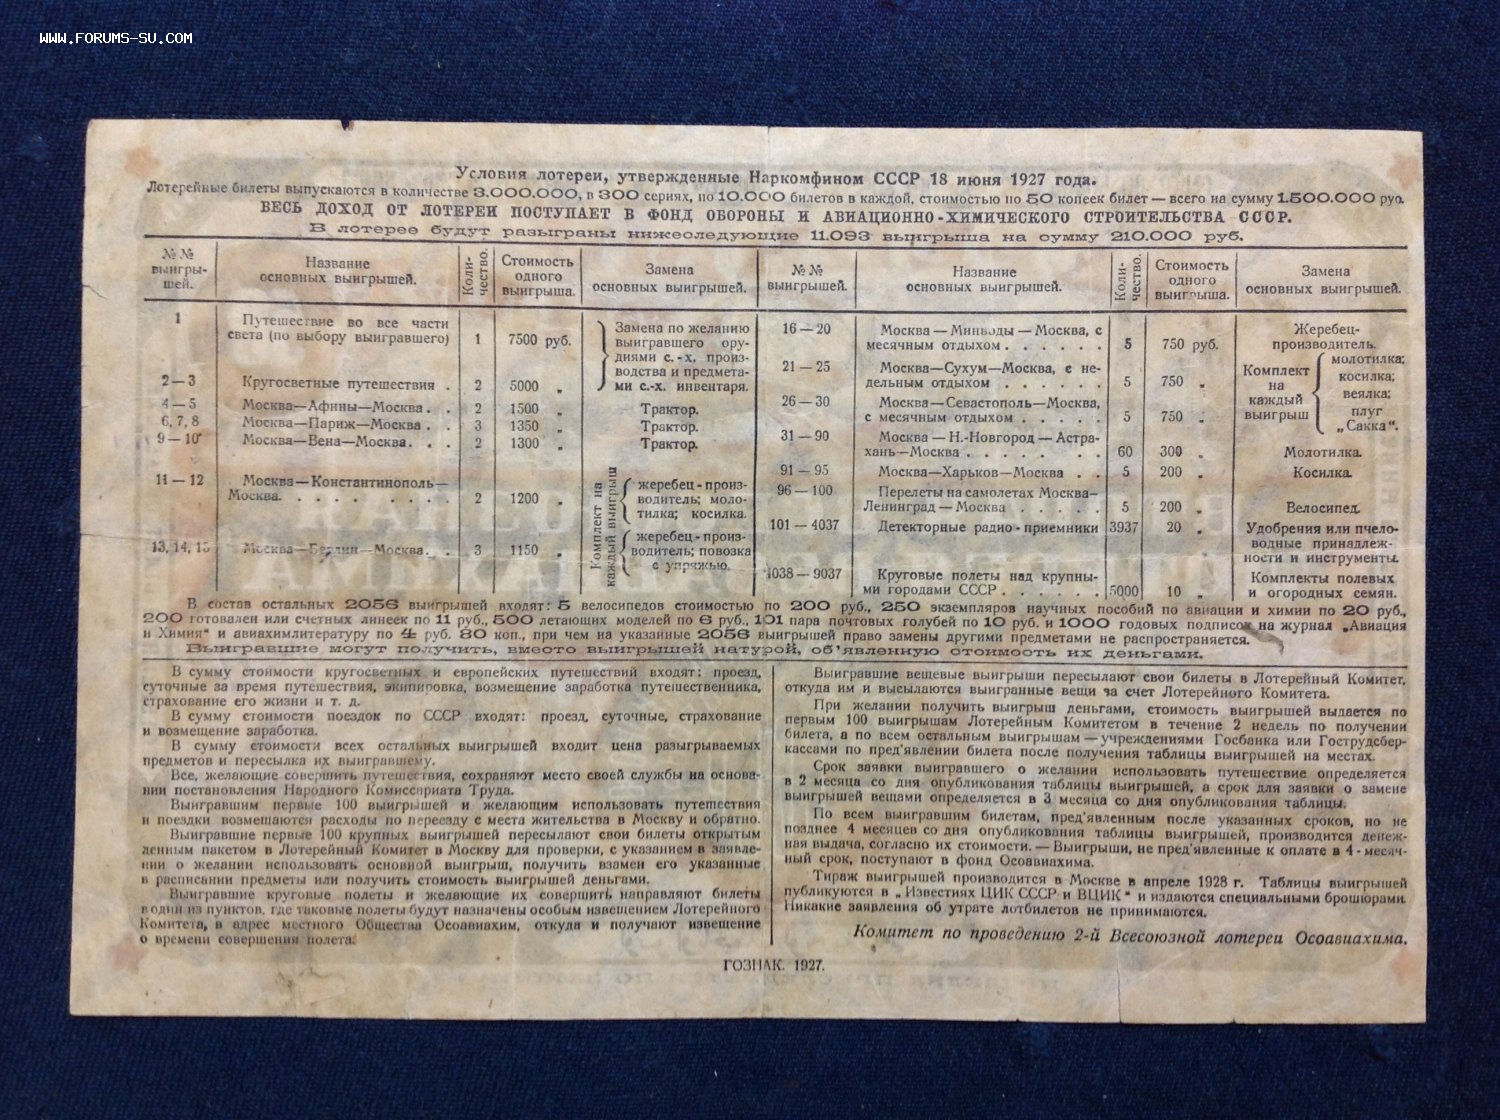 WWW.FORUMS-SU.COM
Условия лотереи, утвержденные Наркомфином СССР 18 июня 1927 года.
Лотерейные билеты выпускаются в количестве 3.000.000, в 300 сериях, по 10.000 билетов в каждой, стоимостью по 50 копеек билет — всего на сумму 1.500.000 руб.
ВЕСЬ ДОХОД ОТ ЛОТЕРЕИ ПОСТУПАЕТ В ФОНД ОБОРОНЫ И АВИАЦИОННО-ХИМИЧЕСКОГО СТРОИТЕЛЬСТВА СССР.
В лотерее будут разыграны нижеследующие 11.093 выигрыша на сумму 210.000 руб.
№№ выигры-шей.
Название основных выигрышей.
Коли-чество.
Стоимость одного выигрыша.
Замена основных выигрышей.
№№ выигрышей.
Название основных выигрышей.
Коли-чество.
Стоимость одного выигрыша.
Замена основных выигрышей.
1 Путешествие во все части
света (по выбору выигравшего) 1 7500 руб.
2 — 3 Кругосветные путешествия . 2 5000 „
Замена по желанию
выигравшего ору-
диями с.-х. произ-
водства и предмета-
ми с.-х. инвентаря.
4 — 5 Москва—Афины—Москва . . 2 1500 „ Трактор.
6, 7, 8 Москва—Париж—Москва . . 3 1350 „ Трактор.
9 — 10 Москва—Вена—Москва . . . 2 1300 „ Трактор.
11 — 12 Москва—Константинополь—
Москва. . . . . . . . . 2 1200 „
Комплект на каждый выигрыш
жеребец-произ-
водитель; моло-
тилка; косилка.
13, 14, 15 Москва—Берлин—Москва. . 3 1150 „
жеребец-произ-
водитель; повозка
с упряжью.
16 — 20 Москва — Минводы — Москва, с
месячным отдыхом . . . . . . 5 750 руб.
Жеребец-
производитель.
21 — 25 Москва—Сухум—Москва, с не-
дельным отдыхом . . . . . . 5 750 „
26 — 30 Москва—Севастополь—Москва,
с месячным отдыхом . . . . . 5 750 „
Комплект
на
каждый
выигрыш
молотилка;
косилка;
веялка;
плуг
„Сакка“.
31 — 90 Москва — Н.-Новгород — Астра-
хань—Москва . . . . . . . 60 300 „ Молотилка.
91 — 95 Москва—Харьков—Москва . . 5 200 „ Косилка.
96 — 100 Перелеты на самолетах Москва—
Ленинград — Москва . . . . . 5 200 „ Велосипед.
101 — 4037 Детекторные радио-приемники 3937 20 „ Удобрения или пчело-
водные принадлеж-
ности и инструменты.
4038 — 9037 Круговые полеты над крупны-
ми городами СССР . . . . . . 5000 10 „
Комплекты полевых
и огородных семян.
В состав остальных 2056 выигрышей входят: 5 велосипедов стоимостью по 200 руб., 250 экземпляров научных пособий по авиации и химии по 20 руб.,
200 готовален или счетных линеек по 11 руб., 500 летающих моделей по 6 руб., 101 пара почтовых голубей по 10 руб. и 1000 годовых подписок на журнал „Авиация
и Химия“ и авиахимлитературу по 4 руб. 80 коп., при чем на указанные 2056 выигрышей право замены другими предметами не распространяется.
Выигравшие могут получить, вместо выигрышей натурой, об'явленную стоимость их деньгами.
В сумму стоимости кругосветных и европейских путешествий входят: проезд,
суточные за время путешествия, экипировка, возмещение заработка путешественника,
страхование его жизни и т. д.
В сумму стоимости поездок по СССР входят: проезд, суточные, страхование
и возмещение заработка.
В сумму стоимости всех остальных выигрышей входит цена разыгрываемых
предметов и пересылка их выигравшему.
Все, желающие совершить путешествия, сохраняют место своей службы на основа-
нии постановления Народного Комиссариата Труда.
Выигравшим первые 100 выигрышей и желающим использовать путешествия
и поездки возмещаются расходы по переезду с места жительства в Москву и обратно.
Выигравшие первые 100 крупных выигрышей пересылают свои билеты открытым
ценным пакетом в Лотерейный Комитет в Москву для проверки, с указанием в заявле-
нии о желании использовать основной выигрыш, получить взамен его указанные
в расписании предметы или получить стоимость выигрышей деньгами.
Выигравшие круговые полеты и желающие их совершить направляют билеты
в один из пунктов, где таковые полеты будут назначены особым извещением Лотерейного
Комитета, в адрес местного Общества Осоавиахим, откуда и получают извещение
о времени совершения полета.
Выигравшие вещевые выигрыши пересылают свои билеты в Лотерейный Комитет,
откуда им и высылаются выигранные вещи за счет Лотерейного Комитета.
При желании получить выигрыш деньгами, стоимость выигрышей выдается по
первым 100 выигрышам Лотерейным Комитетом в течение 2 недель по получении
билета, а по всем остальным выигрышам — учреждениями Госбанка или Гострудсбер-
кассами по пред'явлении билета после получения таблицы выигрышей на местах.
Срок заявки выигравшего о желании использовать путешествие определяется
в 2 месяца со дня опубликования таблицы выигрышей, а срок для заявки о замене
выигрышей вещами определяется в 3 месяца со дня опубликования таблицы.
По всем выигравшим билетам, пред'явленным после указанных сроков, но не
позднее 4 месяцев со дня опубликования таблицы выигрышей, производится денеж-
ная выдача, согласно их стоимости. — Выигрыши, не пред'явленные к оплате в 4-месяч-
ный срок, поступают в фонд Осоавиахима.
Тираж выигрышей производится в Москве в апреле 1928 г. Таблицы выигрышей
публикуются в „Известиях ЦИК СССР и ВЦИК“ и издаются специальными брошюрами.
Никакие заявления об утрате лотбилетов не принимаются.
Комитет по проведению 2-й Всесоюзной лотереи Осоавиахима.
ГОЗНАК. 1927.